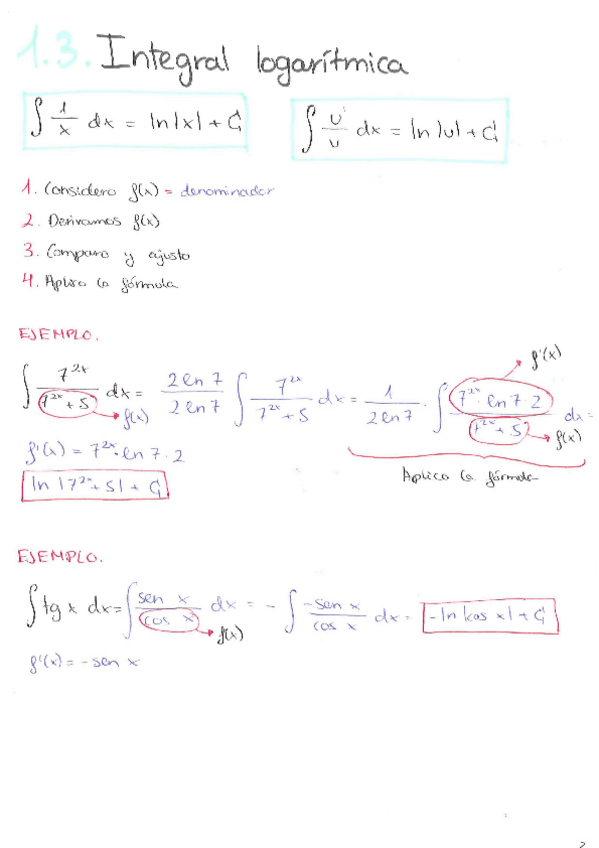 1.3. Integral logarítmica
∫ 1/x dx = ln|x| + C
∫ u'/u dx = ln|u| + C
1. Considero f(x) = denominador
2. Derivamos f(x)
3. Comparo y ajusto
4. Aplico la fórmula
EJEMPLO.
∫ 7^2x/(7^2x + 5) dx = (2 ln 7)/(2 ln 7) ∫ 7^2x/(7^2x + 5) dx = 1/(2 ln 7) · ∫ (7^2x ln 7 · 2)/(7^2x + 5) dx =
f(x)
f'(x)
f(x)
f'(x) = 7^2x · ln 7 · 2
Aplico la fórmula
ln |7^2x + 5| + C
EJEMPLO.
∫ tg x dx = ∫ sen x/cos x dx = - ∫ -sen x/cos x dx = -ln |cos x| + C
f(x)
f'(x) = - sen x
2